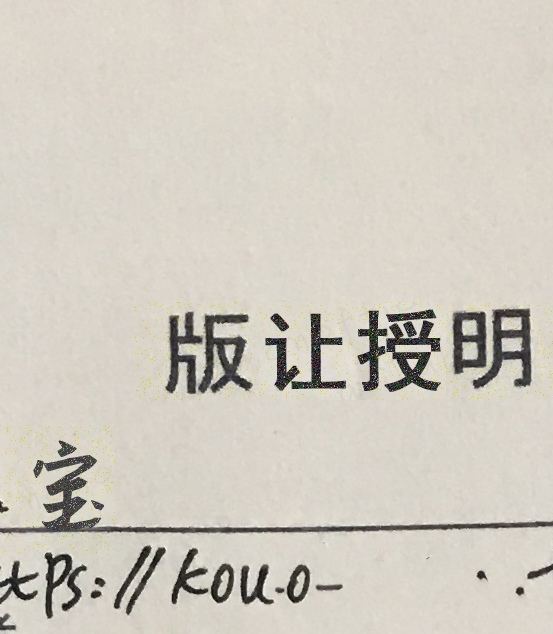 版让授明
宝
ttps://kou.o-